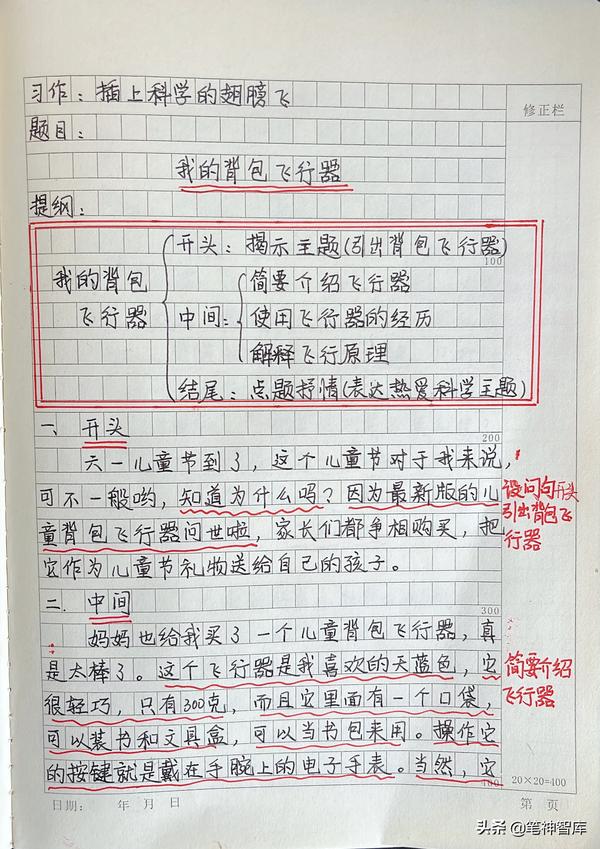 习作：插上科学的翅膀飞
修正栏
题目：
我的背包飞行器
提纲：
开头：揭示主题(引出背包飞行器)
100
我的背包
飞行器
中间：
简要介绍飞行器
使用飞行器的经历
解释飞行原理
结尾：点题抒情(表达热爱科学主题)
一、开头
200
六一儿童节到了，这个儿童节对于我来说，
可不一般哟，知道为什么吗？因为最新版的儿
童背包飞行器问世啦，家长们都争相购买，把
它作为儿童节礼物送给自己的孩子。
设问句开头
引出背包飞
行器
二、中间
300
妈妈也给我买了一个儿童背包飞行器，真
是太棒了。这个飞行器是我喜欢的天蓝色，它
很轻巧，只有300克，而且它里面有一个口袋，
可以装书和文具盒，可以当书包来用。操作它
的按键就是戴在手腕上的电子手表。当然，它
简要介绍
飞行器
400
20×20=400
日期： 年 月 日
第 页
头条 @笔神智库